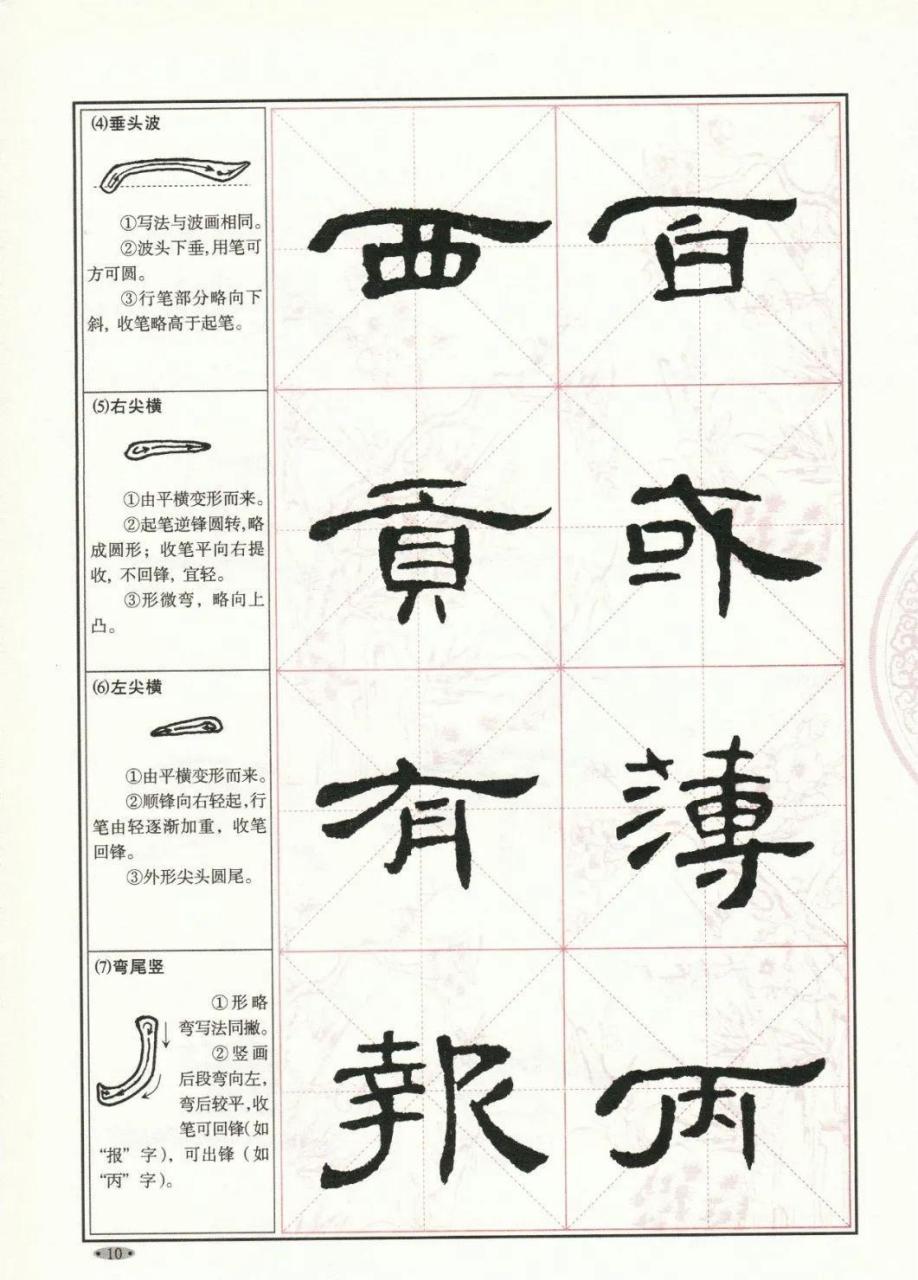 ⑷垂头波
①写法与波画相同。
②波头下垂,用笔可
方可圆。
③行笔部分略向下
斜, 收笔略高于起笔。
西 百
⑸右尖横
①由平横变形而来。
②起笔逆锋圆转,略
成圆形；收笔平向右提
收, 不回锋, 宜轻。
③形微弯，略向上
凸。
貢 或
⑹左尖横
①由平横变形而来。
②顺锋向右轻起,行
笔由轻逐渐加重，收笔
回锋。
③外形尖头圆尾。
有 薄
⑺弯尾竖
①形略
弯写法同撇。
②竖画
后段弯向左,
弯后较平,收
笔可回锋(如
“报”字)，可出锋（如
“丙”字)。
報 丙
·10·